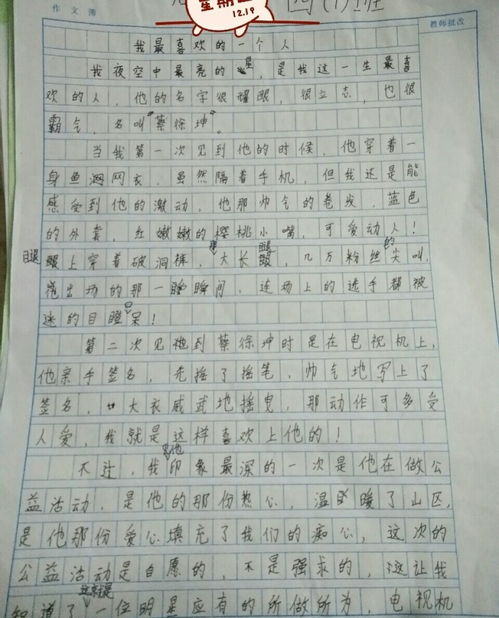 作文簿 教师批改
星期
12.19
四(1)班
我最喜欢的一个人
我夜空中最亮的星，是我这一生最喜
欢的人，他的名字很耀眼，很立志，也很
霸气，名叫“蔡徐坤”。
当我第一次见到他的时候，他穿着一
身鱼渔网衣，虽然隔着手机，但我还是能
感受到他的激动，他那帅气的卷发，蓝色
的外套，红嫩嫩的樱桃小嘴，可爱动人！
腿上穿着破洞裤，大长腿，几万粉丝的尖叫，
出场的那一瞬间，连场上的选手都被
迷的目瞪口呆！
第二次见到蔡徐坤时是在电视机上，
他亲手签名，先摇了摇笔，帅气地写上了
签名，大衣威武地摇曳，那动作可多受
人爱，我就是这样喜欢上他的！
不过，我对他印象最深的一次是他在做公
益活动，是他的那份热心，温暖了山区，
是他那份爱心填充了我们的痴心，这次的
公益活动是自愿的，不是强求的，这让我
知道了这就是一位明星应有的所做所为，电视机